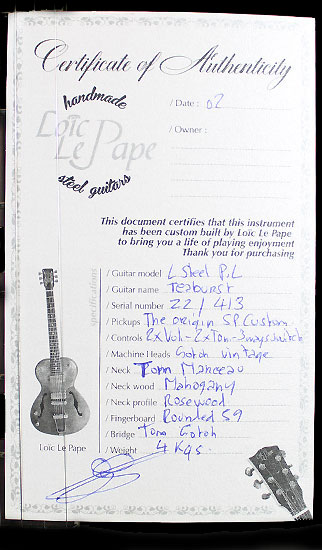 Certificate of Authenticity
handmade
Loïc
Le Pape
steel guitars
/ Date : 02
/ Owner :
This document certifies that this instrument
has been custom built by Loïc Le Pape
to bring you a life of playing enjoyment
Thank you for purchasing
specifications
/ Guitar model L Steel P.L
/ Guitar name Teaburst
/ Serial number 22 / 413
/ Pickups The origin SP Custom
/ Controls 2xVol - 2xTon - 3ways switch
/ Machine Heads Gotoh Vintage
/ Neck Tom Manceau
/ Neck wood Mahogany
/ Neck profile Rosewood
/ Fingerboard Rounded 59
/ Bridge Tom Gotoh
/ Weight 4 Kgs
Loïc Le Pape